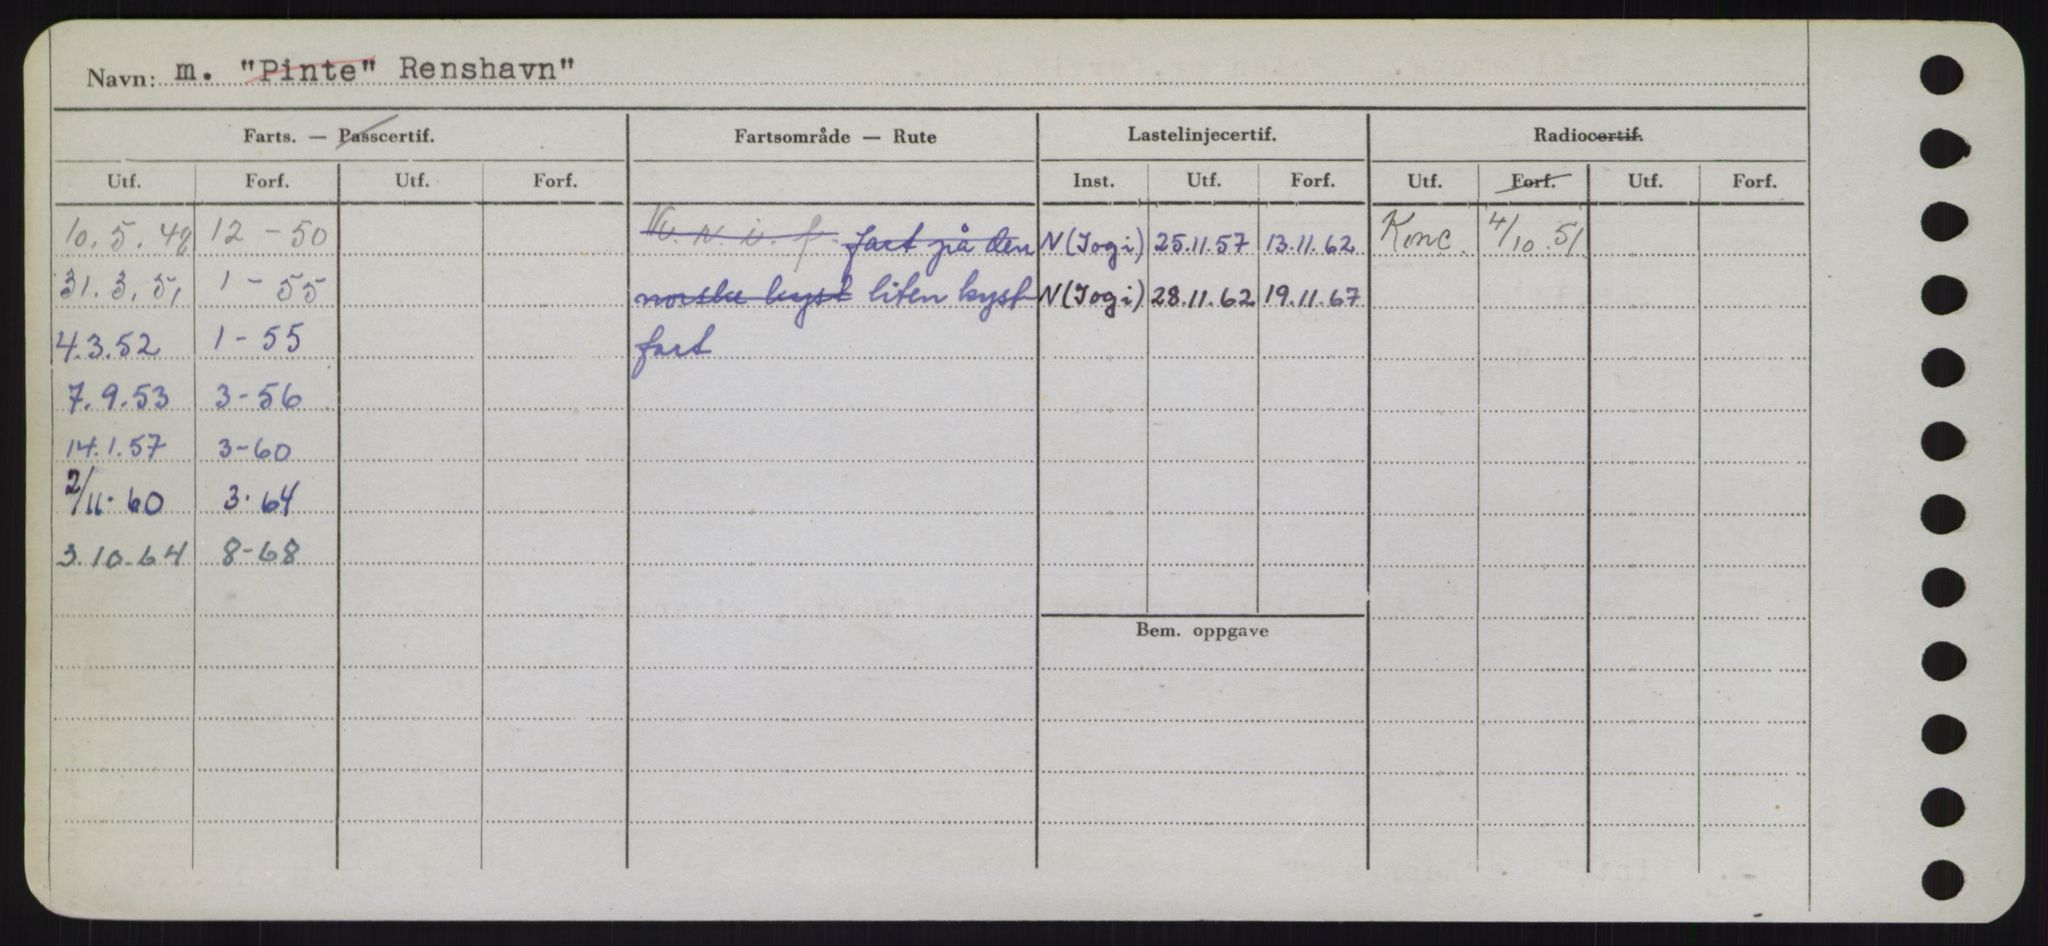 Navn: m. "Pinte" Renshavn"
Farts. — Passcertif. Fartsområde — Rute Lastelinjecertif. Radiocertif.
Utf. Forf. Utf. Forf. Inst. Utf. Forf. Utf. Forf. Utf. Forf.
10.5.48 12-50 fart på den N(Iogi) 25.11.57 13.11.62 Konc. 4/10.51
31.3.51 1-55 norske kyst liten kyst N(Iogi) 28.11.62 19.11.67
4.3.52 1-55 fart
7.9.53 3-56
14.1.57 3-60
2/11.60 3.64
3.10.64 8-68
Bem. oppgave